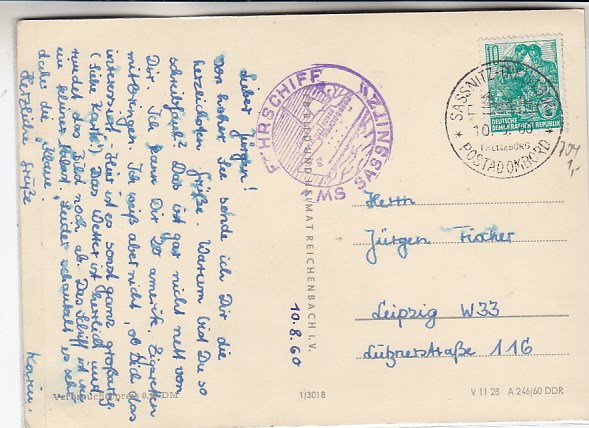 Lieber Jürgen!
Von hoher See sende ich Dir die
herzlichsten Grüße. Warum bist Du so
schreibfaul? Das ist gar nicht nett von
Dir. Ich kann Dir 20 amerik. Zigaretten
mitbringen. Ich weiß aber nicht, ob Dich das
interessiert. Hier ist es sonst ganz großartig.
(Siehe Karte!) Das Wetter ist herrlich und
rundet das Bild noch ab. Das Schiff ist wie
ein kleiner Palast. Leider schaukelt es sehr
Herzliche Grüße
Karin.
FÄHRSCHIFF
MS SASSNITZ
BILD UND HEIMAT REICHENBACH I. V.
10.8.60
10
DEUTSCHE
DEMOKRATISCHE REPUBLIK
SASSNITZ
TRELLEBORG
POSTADOMBORD
Herrn
Jürgen Fischer
Leipzig W33
Lütznerstraße 116
Verbraucherpreis
1/3018
V 11 28 A 246/60 DDR